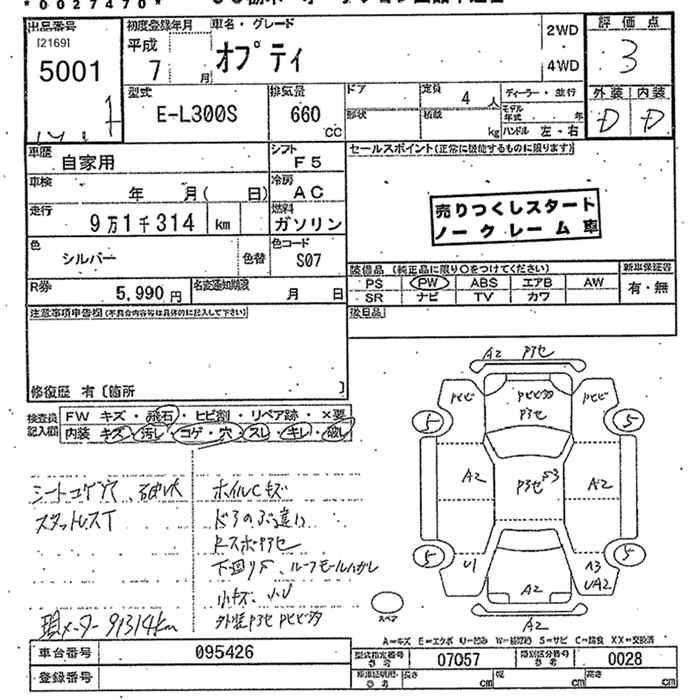 *0027470*
出品番号 初度登録年月 車名・グレード 2WD 評価点
[2169] 平成
5001 7 月 オプティ 4WD 3
型式 排気量 ドア 定員 4 人 ディーラー・並行 外装 内装
E-L300S 660 CC 形状 積載 kg モデル年式 年 D D
ハンドル 左・右
車歴 自家用 シフト F5 セールスポイント(正常に機能するものに限ります)
車検 年 月( 日) 冷房 AC
走行 9万1千314 km 燃料 ガソリン 売りつくしスタート
ノークレーム車
色 シルバー 色替 色コード S07
装備品(純正品に限り○をつけてください) 新車保証書
PS PW ABS エアB AW 有・無
SR ナビ TV カワ
R券 5,990円 名変通知期限 月 日
注意事項申告欄(不具合内容等は具体的に記入して下さい) 後日品
修復歴 有〔箇所 〕
検査員 FW キズ・飛石・ヒビ割・リペア跡・×要
記入欄 内装 キズ・汚レ・コゲ・穴・スレ・キレ・破レ
A2 P3セ
PヒビP3セ
Pヒビ Pヒビ
5 5
A2 P3セ A2
5 5
U1 A3
UA2
A2
A2
シートコゲ穴、破レ大 ホイルCキズ
スタットレスT ドアのぶ違い
RスポP3セ
下回りS、ルーフモールハガレ
小キズ、小U
現メーター91314km 外装P3セ Pヒビ
スペア
A=キズ E=エクボ U=凹み W=補修跡 S=サビ C=腐食 XX=交換済
車台番号 095426 型式指定番号 参考 07057 類別区分番号 参考 0028
登録番号 参考 長さ cm 幅 cm 高さ cm